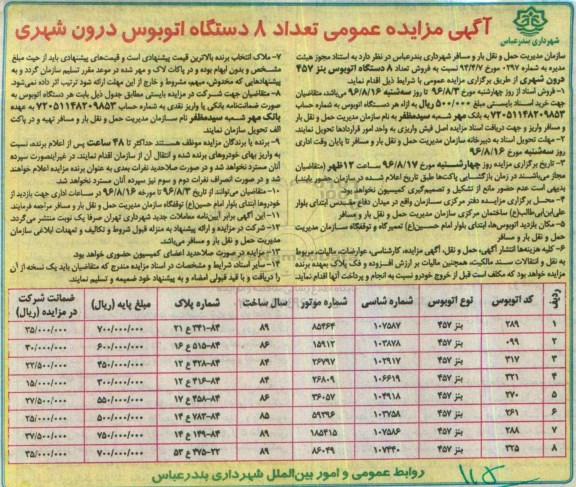 شهرداری بندرعباس
آگهی مزایده عمومی تعداد ۸ دستگاه اتوبوس درون شهری
سازمان مدیریت حمل و نقل بار و مسافر شهرداری بندرعباس در نظر دارد به استناد مجوز هیئت
مدیره به شماره ۲۹۷ مورخ ۹۴/۴/۷ نسبت به فروش تعداد ۸ دستگاه اتوبوس بنز ۴۵۷
درون شهری از طریق برگزاری مزایده عمومی با شرایط ذیل اقدام نماید.
۱- فروش اسناد از روز چهارشنبه مورخ ۹۶/۸/۳ تا روز سه‌شنبه ۹۶/۸/۱۶ می‌باشد، متقاضیان
جهت خرید اسناد بایستی مبلغ ۵۰۰/۰۰۰ ریال به ازاء هر دستگاه اتوبوس به شماره حساب
۷۲۰۵۱۱۴۸۲۰۹۸۵۳ به بانک مهر شعبه سیدمظفر به نام سازمان مدیریت حمل و نقل بار
و مسافر واریز و جهت دریافت اسناد مزایده اصل فیش واریزی به واحد امور قراردادها تحویل نمایند.
۲- مهلت تحویل اسناد به دبیرخانه سازمان مدیریت حمل و نقل بار و مسافر تا پایان وقت اداری
روز سه‌شنبه مورخ ۹۶/۸/۱۶
۳- تاریخ برگزاری مزایده روز چهارشنبه مورخ ۹۶/۸/۱۷ ساعت ۱۲ ظهر (متقاضیان
مجاز می‌باشند در زمان بازگشایی پاکت‌ها طبق تاریخ اعلام شده در سازمان حضور یابند.)
بدیهی است عدم حضور مانع از تشکیل و تصمیم‌گیری کمیسیون نخواهد بود
۴- محل برگزاری مزایده دفتر مرکزی سازمان واقع در میدان دفاع مقدس ابتدای بلوار
علی‌ابن‌ابی‌طالب(ع) ساختمان مرکزی سازمان مدیریت حمل و نقل بار و مسافر
۵- مکان بازدید اتوبوس‌ها، ابتدای بلوار امام حسین(ع) تعمیرگاه و توقفگاه سازمان مدیریت
حمل و نقل بار و مسافر
۶- کلیه هزینه‌ها انتشار آگهی، حمل و نقل، آگهی مزایده، کارشناسی، عوارضات، مالیات، مربوط
به نقل و انتقالات سند مالکیت، همچنین مالیات بر ارزش افزوده و فک پلاک بعهده برنده
مزایده خواهد بود که مکلف است قبل از خروج خودرو نسبت به انجام و پرداخت آنها اقدام نماید.
۷- ملاک انتخاب برنده بالاترین قیمت پیشنهادی است و قیمت‌های پیشنهادی باید از حیث مبلغ
مشخص و بدون ابهام بوده و در پاکات لاک و مهر شده در موعد مقرر تسلیم سازمان گردد و به
پیشنهادهای که مخدوش، مبهم، مشروط و خارج از این مهلت ارائه شود ترتیب اثر داده نمی‌شود.
۸- متقاضیان جهت شرکت در مزایده بایستی مطابق جدول ذیل بابت هر دستگاه اتوبوس به
صورت ضمانت‌نامه بانکی یا واریز نقدی به شماره حساب ۷۲۰۵۱۱۴۸۲۰۹۸۵۳ به عهده
بانک مهر شعبه سیدمظفر نام سازمان مدیریت حمل و نقل بار و مسافر تهیه و در پاکت
الف تحویل سازمان نمایند.
۹- برنده یا برندگان مزایده موظف هستند حداکثر تا ۴۸ ساعت پس از اعلام برنده، نسبت
به واریز بهای خودروهای برنده شده و انتقال آن از سازمان اقدام نمایند، در غیراینصورت سپرده
آنان مسترد نخواهد شد و در صورت صلاحدید نفرات بعدی به عنوان برنده مزایده اعلام خواهند
شد و در صورت انصراف نفرات دوم و سوم نیز سپرده آنان مسترد نخواهد شد.
۱۰- متقاضیان می‌توانند از تاریخ ۹۶/۸/۳ تا مورخه ۹۶/۸/۱۶ در ساعات اداری جهت بازدید از
خودروها ابتدای بلوار امام حسین(ع) توقفگاه سازمان مدیریت حمل و نقل بار و مسافر مراجعه فرمایند.
۱۱- این آگهی برابر آیین‌نامه معاملات جدید شهرداری تهران صرفا یک نوبت منتشر می‌گردد.
۱۲- شرکت در مزایده و ارائه پیشنهاد به منزله قبول شروط و تکالیف و تعهدات ابلاغی سازمان
مدیریت حمل و نقل بار و مسافر می‌باشد.
۱۳- مزایده در صورت صلاحدید اعضای کمیسیون حضوری خواهد بود.
۱۴- سایر اسناد شرایط و مشخصات در اسناد مزایده مندرج که متقاضیان باید یک نسخه از آن
را دریافت و با قید قبولی امضاء و به پیشنهاد خود ضمیمه و تسلیم نمایند.
ردیف کد اتوبوس نوع اتوبوس شماره شاسی شماره موتور سال ساخت شماره پلاک مبلغ پایه (ریال) ضمانت شرکت در مزایده (ریال)
۱ ۲۸۹ بنز ۴۵۷ ۱۰۷۵۸۷ ۸۵۴۶۴ ۸۹ ۸۴-۳۴۱ع ۲۱ ۷۰۰/۰۰۰/۰۰۰ ۳۵/۰۰۰/۰۰۰
۲ ۰۹۹ بنز ۴۵۷ ۱۰۳۸۷۸ ۱۵۹۱۲ ۸۶ ۸۴-۵۱۵ع ۱۶ ۶۰۰/۰۰۰/۰۰۰ ۳۰/۰۰۰/۰۰۰
۳ ۳۱۷ بنز ۴۵۷ ۱۰۲۹۱۷ ۲۶۷۹۷ ۸۴ ۸۴-۴۲۸ع ۱۲ ۴۵۰/۰۰۰/۰۰۰ ۲۲/۵۰۰/۰۰۰
۴ ۳۲۱ بنز ۴۵۷ ۱۰۶۶۱۹ ۲۶۸۰۹ ۸۴ ۸۴-۴۱۶ع ۱۲ ۳۰۰/۰۰۰/۰۰۰ ۱۵/۰۰۰/۰۰۰
۵ ۲۷۰ بنز ۴۵۷ ۱۰۴۹۱۸ ۳۶۰۵۷ ۸۶ ۸۴-۴۵۸ع ۱۷ ۵۵۰/۰۰۰/۰۰۰ ۲۷/۵۰۰/۰۰۰
۶ ۲۶۱ بنز ۴۵۷ ۱۰۳۷۵۸ ۵۹۳۹۶ ۸۵ ۸۴-۷۸۳ع ۱۴ ۵۰۰/۰۰۰/۰۰۰ ۲۵/۰۰۰/۰۰۰
۷ ۲۸۸ بنز ۴۵۷ ۱۰۷۵۸۶ ۱۸۵۴۱۵ ۸۹ ۸۴-۱۴۹ع ۱۴ ۷۵۰/۰۰۰/۰۰۰ ۳۷/۵۰۰/۰۰۰
۸ ۳۲۵ بنز ۴۵۷ ۱۰۷۴۴۰ ۸۶۰۴۹ ۸۹ ۲۲-۴۷۵ع ۵۳ ۷۰۰/۰۰۰/۰۰۰ ۳۵/۰۰۰/۰۰۰
روابط عمومی و امور بین‌الملل شهرداری بندرعباس